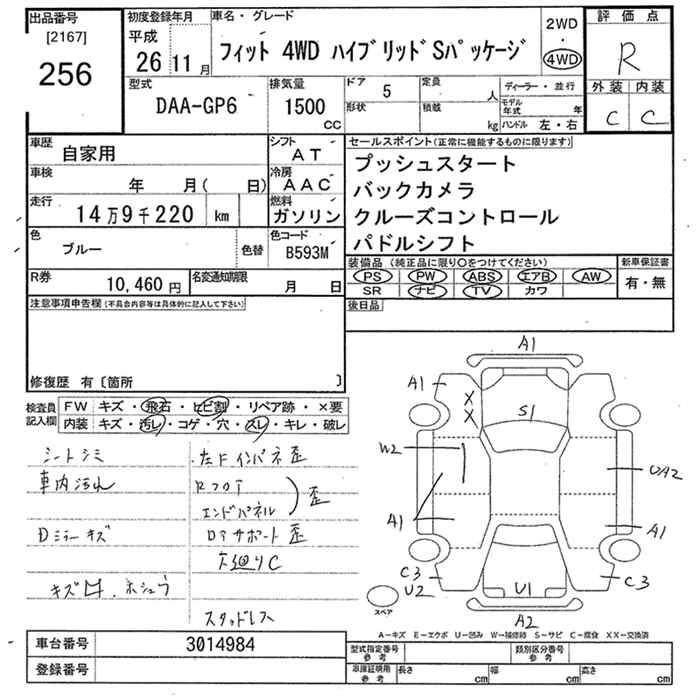 出品番号
[2167]
256
初度登録年月
平成
26 11月
車名・グレード
フィット 4WD ハイブリッドSパッケージ
2WD
・
4WD
評価点
R
外装 内装
C C
型式
DAA-GP6
排気量
1500
CC
ドア 5
形状
定員
人
積載
kg
ディーラー・並行
モデル年式 年
ハンドル 左・右
車歴
自家用
シフト
AT
車検
年 月( 日)
冷房
AAC
走行
14万9千220 km
燃料
ガソリン
色
ブルー
色替
色コード
B593M
R券
10,460円
名変通知期限
月 日
セールスポイント(正常に機能するものに限ります)
プッシュスタート
バックカメラ
クルーズコントロール
パドルシフト
装備品(純正品に限り○をつけてください)
PS PW ABS エアB AW
SR ナビ TV カワ
新車保証書
有・無
後日品
注意事項申告欄(不具合内容等は具体的に記入して下さい)
修復歴 有〔箇所 〕
検査員記入欄
FW キズ・飛石・ヒビ割・リペア跡・×要
内装 キズ・汚レ・コゲ・穴・スレ・キレ・破レ
シートシミ
車内汚れ
Dミラーキズ
キズ凹、ホシュウ
左Fインパネ歪
Rフロア
エンドパネル
歪
ロアサポート歪
下廻りC
スタッドレス
A1
A1
X
X
S1
W2
UA2
A1
A1
C3
U2
U1
C3
A2
スペア
A-キズ E-エクボ U-凹み W-補修跡 S-サビ C-腐食 XX-交換済
車台番号
3014984
登録番号
型式指定番号
参考
類別区分番号
参考
車庫証明用
参考
長さ cm
幅 cm
高さ cm